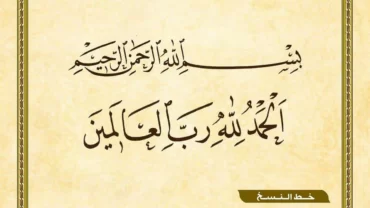 بِسْمِ اللهِ الرَّحْمٰنِ الرَّحِيْمِ
اَلْحَمْدُ لِلّٰهِ رَبِّ الْعَالَمِيْنَ
خط النسخ